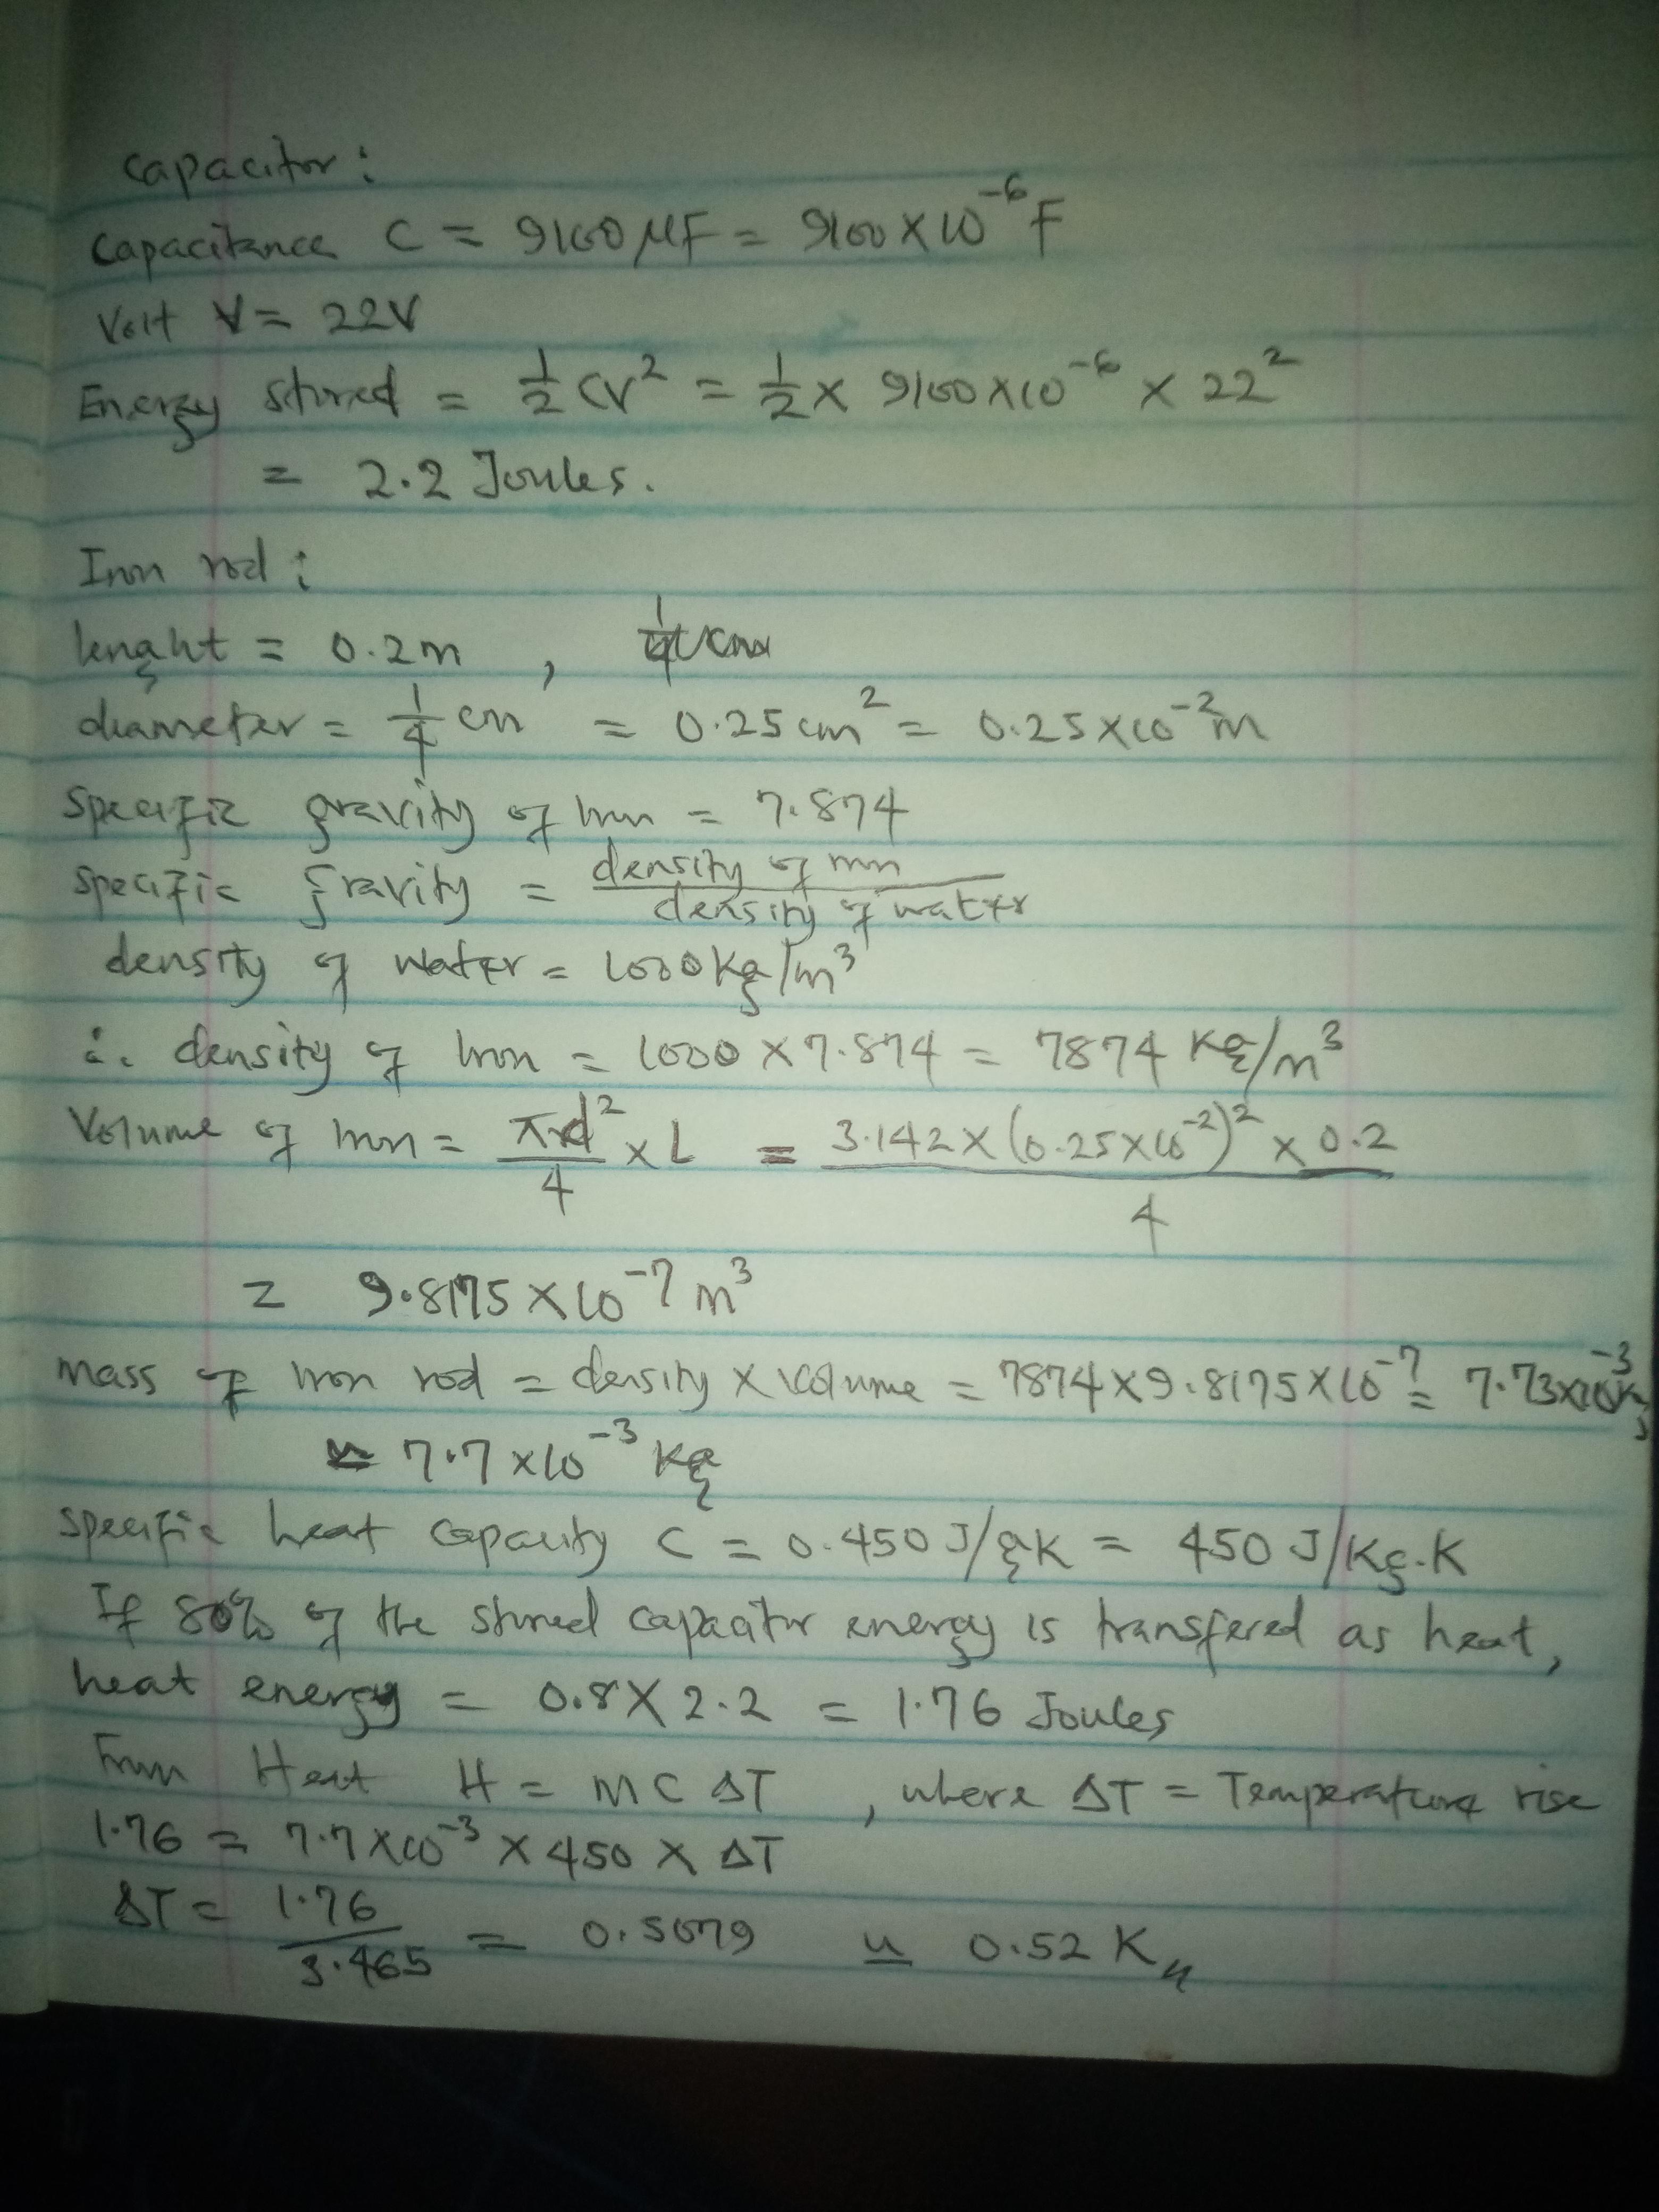 Capacitor:
Capacitance C = 9100 μF = 9100 × 10⁻⁶ F
Volt V = 22V
Energy stored = 1/2 CV² = 1/2 × 9100 × 10⁻⁶ × 22²
= 2.2 Joules.
Iron rod:
lenght = 0.2m ,
diameter = 1/4 cm = 0.25 cm² = 0.25 × 10⁻² m
Specific gravity of iron = 7.874
Specific gravity = density of iron / density of water
density of water = 1000 Kg/m³
∴ density of iron = 1000 × 7.874 = 7874 Kg/m³
Volume of iron = πd²/4 × L = 3.142 × (0.25 × 10⁻²)² × 0.2 / 4
= 9.8175 × 10⁻⁷ m³
Mass of iron rod = density × volume = 7874 × 9.8175 × 10⁻⁷ = 7.73 × 10⁻³ Kg
≃ 7.7 × 10⁻³ Kg
Specific heat capacity C = 0.450 J/gK = 450 J/Kg.K
If 80% of the stored capacitor energy is transfered as heat,
heat energy = 0.8 × 2.2 = 1.76 Joules
From Heat H = MCΔT , where ΔT = Temperature rise
1.76 = 7.7 × 10⁻³ × 450 × ΔT
ΔT = 1.76 / 3.465 = 0.5079 ≃ 0.52 K